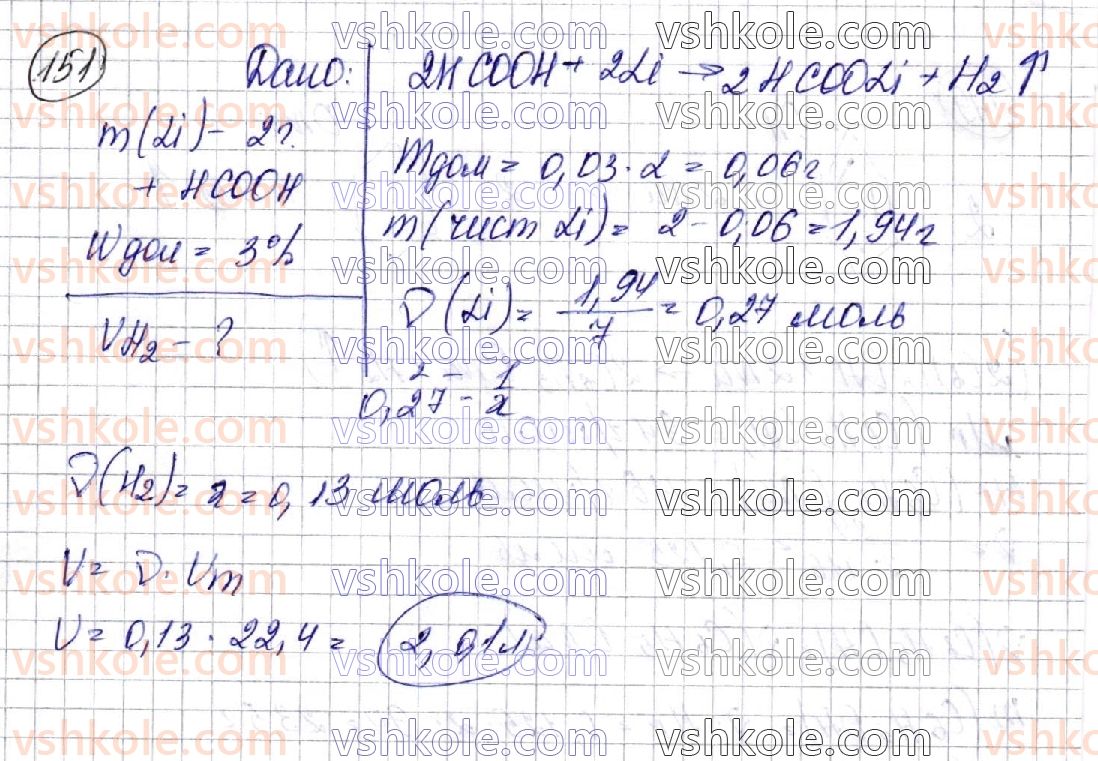 151
Дано:
m(Li) - 2г.
+ HCOOH
Wдом = 3%
VH2 - ?
2HCOOH + 2Li → 2HCOOLi + H2↑
mдом = 0,03 · 2 = 0,06г
m(чист Li) = 2 - 0,06 = 1,94г
ν(Li) = 1,94/7 = 0,27 моль
2 - 1
0,27 - x
ν(H2) = x = 0,13 моль
V = ν · Vm
V = 0,13 · 22,4 = 2,91л
vshkole.com